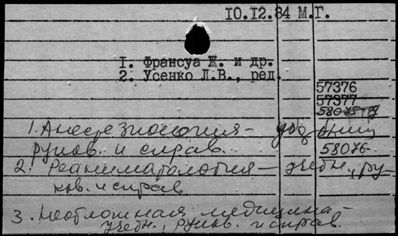 10.12.84 М.Г.
1. Франсуа Ж. и др.
2. Усенко Л.В., ред.
57376
57377
58075-79
1. Анестезиология -
руков. и справ.
58076-
2. Реаниматология - учебн., ру-
ков. и справ
3. Неотложная медицина -
учебн., руков. и справ.